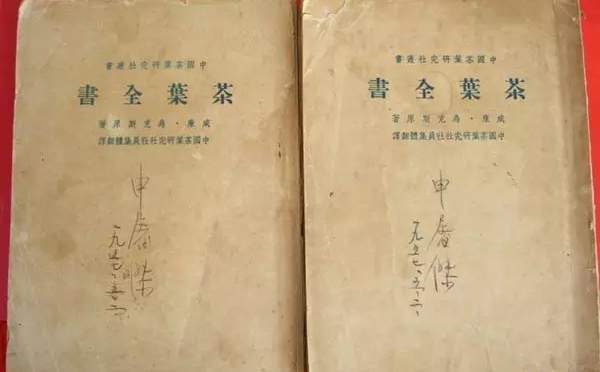 中國茶葉研究社叢書
茶葉全書
威廉・烏克斯原著
中國茶葉研究社社員集體翻譯
申屠傑
一九五七、五、二、
中國茶葉研究社叢書
茶葉全書
威廉・烏克斯原著
中國茶葉研究社社員集體翻譯
申屠傑
一九五七、五、二、